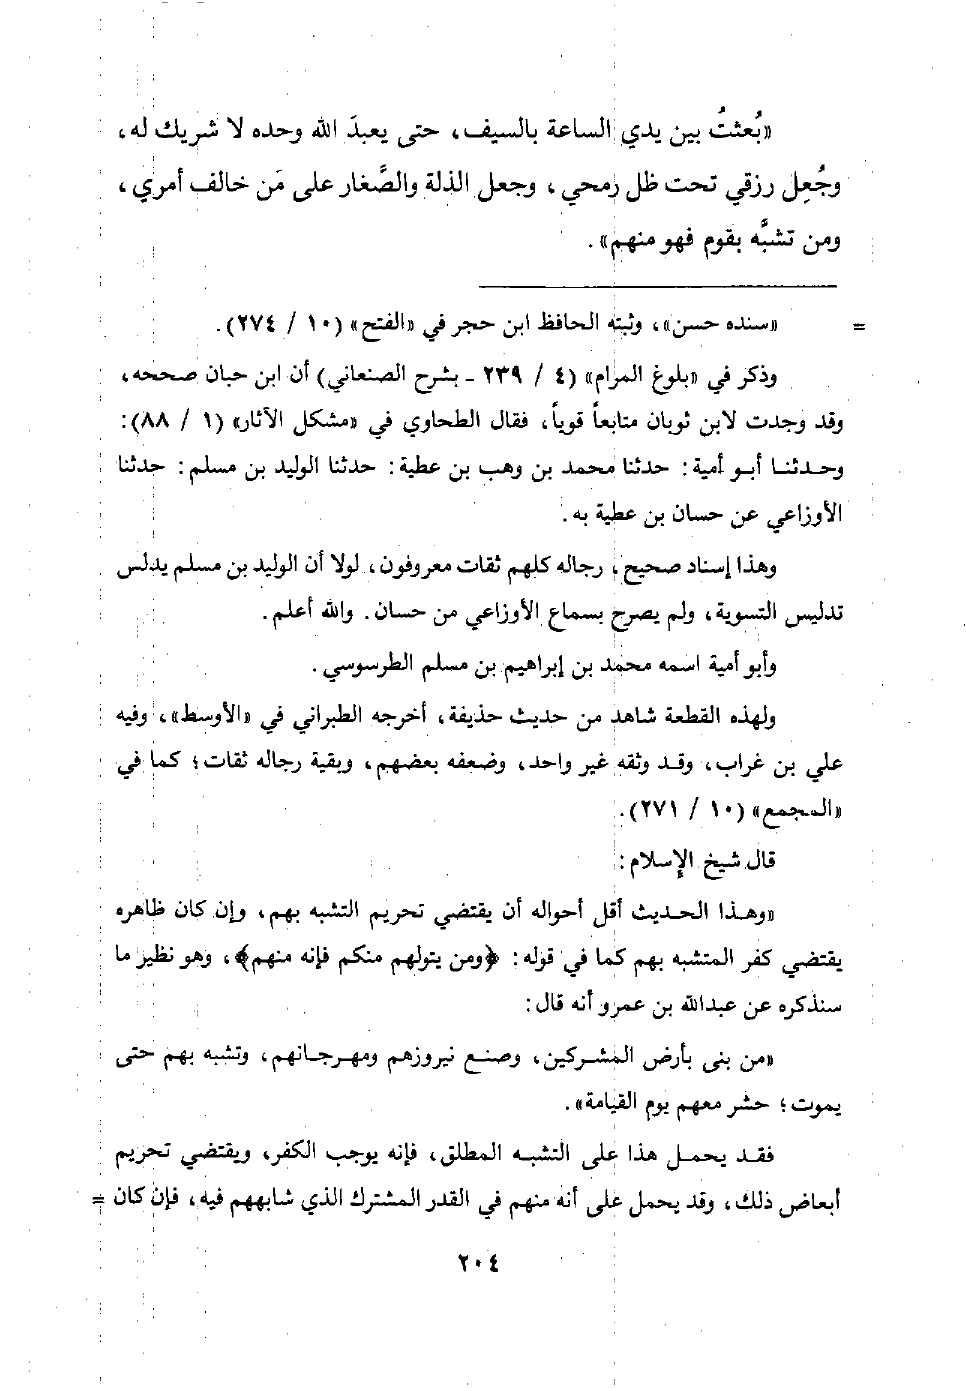 «بُعثتُ بين يدي الساعة بالسيف، حتى يعبدَ الله وحده لا شريك له،
وجُعِل رزقي تحت ظل رمحي، وجعل الذلة والصَّغار على مَن خالف أمري،
ومن تشبَّه بقوم فهو منهم».
= «سنده حسن»، وثبته الحافظ ابن حجر في «الفتح» (١٠ / ٢٧٤).
وذكر في «بلوغ المرام» (٤ / ٢٣٩ ـ بشرح الصنعاني) أن ابن حبان صححه،
وقد وجدت لابن ثوبان متابعاً قوياً، فقال الطحاوي في «مشكل الآثار» (١ / ٨٨):
وحدثنا أبو أمية: حدثنا محمد بن وهب بن عطية: حدثنا الوليد بن مسلم: حدثنا
الأوزاعي عن حسان بن عطية به.
وهذا إسناد صحيح، رجاله كلهم ثقات معروفون، لولا أن الوليد بن مسلم يدلس
تدليس التسوية، ولم يصرح بسماع الأوزاعي من حسان. والله أعلم.
وأبو أمية اسمه محمد بن إبراهيم بن مسلم الطرسوسي.
ولهذه القطعة شاهد من حديث حذيفة، أخرجه الطبراني في «الأوسط»، وفيه
علي بن غراب، وقد وثقه غير واحد، وضعفه بعضهم، وبقية رجاله ثقات؛ كما في
«المجمع» (١٠ / ٢٧١).
قال شيخ الإسلام:
«وهذا الحديث أقل أحواله أن يقتضي تحريم التشبه بهم، وإن كان ظاهره
يقتضي كفر المتشبه بهم كما في قوله: ﴿ومن يتولهم منكم فإنه منهم﴾، وهو نظير ما
سنذكره عن عبدالله بن عمرو أنه قال:
«من بنى بأرض المشركين، وصنع نيروزهم ومهرجانهم، وتشبه بهم حتى
يموت؛ حشر معهم يوم القيامة».
فقد يحمل هذا على التشبه المطلق، فإنه يوجب الكفر، ويقتضي تحريم
أبعاض ذلك، وقد يحمل على أنه منهم في القدر المشترك الذي شابههم فيه، فإن كان =
٢٠٤